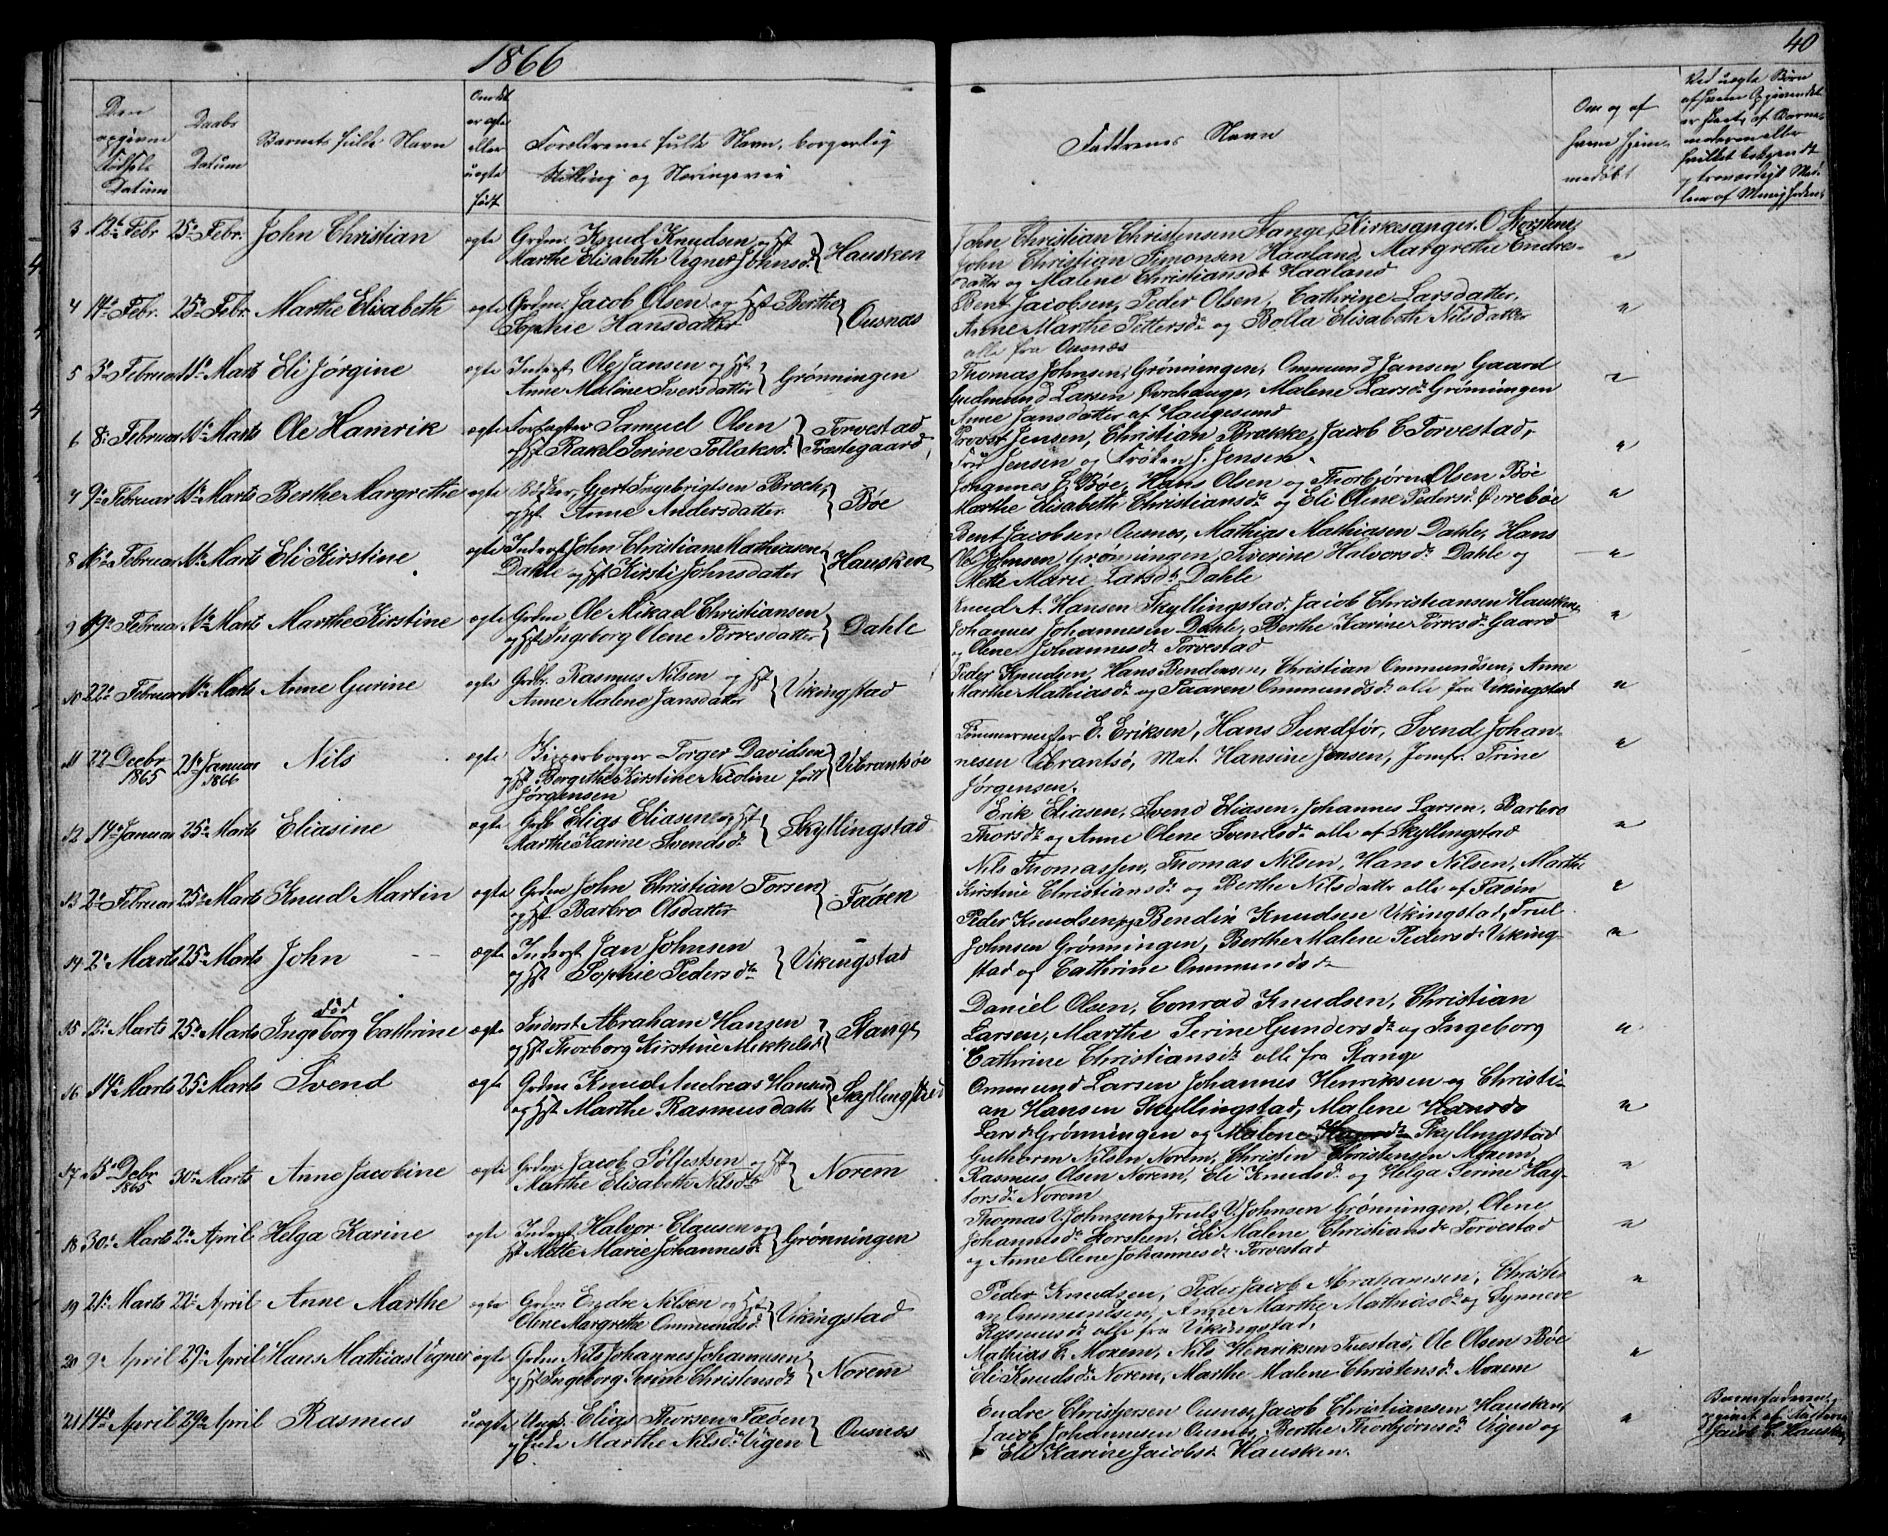 1866
40
Den opgivne Fødsels Datum
Daabs Datum
Barnets fulde Navn
Om det er ægte eller uægte født
Forældrenes fulde Navn, borgerlig
Stilling og Næringsvei
Faddrenes Navn
Om og af hvem hjemmedøbt
Ved uægte Børn
3 12te Febr 25de Febr. John Christian ægte Grdm. Knud Knudsen og Hst
Marthe Elisabeth Vigner Johnsd. Hausken
John Christian Christensen Stange, Kirkesanger O Storsteen,
John Christian Simonsen Haaland, Margrethe Endres-
datter og Malene Christiansdt Haaland
4 14de Febr. 25de Febr. Marthe Elisabeth ægte Grdm. Jacob Olsen og Hst Berthe
Sophie Hansdatter Ousnæs
Bent Jacobsen, Peder Olsen, Cathrine Larsdatter,
Anne Marthe Pettersdr og Bolla Elisabeth Nilsdatter
alle fra Ousnæs
5 3de Februar 11te Marts Eli Jørgine ægte Inderst Ole Jansen og Hst
Anne Malene Iversdatter Grønningen
Thomas Johnsen, Grønningen, Ommund Jansen Gaard
Gudmund Larsen, Malene Larsdr Grønningen
Anne Jansdatter af Haugesund
6 8de Februar 11te Marts Ole Hamrik ægte Forpagter Samuel Olsen
og Hst Rakel Serine Tollaksdr Torvestad Præstegaard,
Provst Jensen, Christian Brakke, Jacob C Torvestad,
Frue Jensen og Frøken J. Jensen.
7 9de Februar 11te Marts Berthe Margrethe ægte Bødker, Gjert Ingebrigtsen Broch,
og Hst. Anne Andersdatter Bøe
Johannes C. Bøe, Hans Olsen og Thorbjørn Olsen Bøe
Marthe Elisabeth Christiansdr og Eli Olene Pedersd. Øvrebøe
8 11te Februar 11te Marts Eli Kirstine ægte Inderst John Christian Mathiasen
Dahle og Hst Kirsti Johnsdatter Hausken
Bent Jacobsen Ousnes, Mathias Mathiasen Dahle, Hans
Johnsen Grønningen, Severine Halvorsdr Dahle og
Mette Marie Larsdr Dahle
9 19de Februar 11te Marts Marthe Kirstine ægte Grdm Ole Mikael Christiansen
og Hst Ingeborg Olene Torresdatter Dahle
Knud A. Hansen Skyllingstad, Jacob Christiansen Hausken,
Johannes Johannesen Dahle, Berthe Karine Torresdr Gaard
og Olene Johannesdr Torvestad
10 22de Februar 11te Marts Anne Gurine ægte Rasmus Nilsen og Hst
Anne Malene Jansdatter Vikingstad
Peder Knudsen, Hans Bendixsen, Christian Ommundsen, Anne
Marthe Mathiasdr og Taaren Ommundsdr alle fra Vikingstad
11 22 Decbr 1865 21de Januar 1866 Nils ægte Torger Davidsen
og Hst Bergithe Kirstine Nicoline født
Jørgensen Vibrantsøe
Tømmermester E. Eriksen, Hans Sundfør, Svend Johan-
nesen Vibrantsø, Mat. Hansine Jensen, Jomfr. Trine
Jørgensen.
12 14de Januar 25de Marts Eliasine ægte Elias Eliasen og Hst
Marthe Karine Svendsdr Skyllingstad
Erik Eliasen, Svend Eliasen, Johannes Larsen, Barbro
Thorsdr og Anne Olene Svendsdr alle af Skyllingstad
13 2de Februar 25de Marts Knud Martin ægte Grdm John Christian Torsen
og Hst Barbro Olsdatter Faøen
Nils Thomassen, Thomas Nilsen, Hans Nilsen, Marthe
Kirstine Christiansdr og Berthe Nilsdattr alle af Faøen
14 2de Marts 25de Marts John ægte Inderst Jan Johnsen
og Hst Sophie Pedersdtr Vikingstad
Peder Knudsen og Bendix Knudsen Vikingstad, Truls
Johnsen Grønningen, Berthe Malene Pedersdr Viking-
stad og Cathrine Ommundsdr
15 12te Marts 25de Marts død Ingeborg Cathrine ægte Inderst Abraham Hansen
og Hst Thorborg Kirstine Mikkelsdr Stange
Daniel Olsen, Conrad Knudsen, Christian
Larsen, Marthe Serine Gundersdr og Ingeborg
Cathrine Christiansdr alle fra Stange
16 14de Marts 25de Marts Svend ægte Grdm Knud Andreas Hansen
og Hst Marthe Rasmusdattr Skyllingstad
Ommund Larsen Johannes Henriksen og Christi-
an Hansen Skyllingstad, Malene
Larsdr Grønningen og Malene Skyllingstad
17 15de Decbr 1865 30te Marts Anne Jacobine ægte Grdm. Jacob Sølfestsen og Hst
Marthe Elisabeth Nilsdtr Norem
Guthorm Nilsen Norem, Christen Christensen Moxem,
Rasmus Olsen Norem, Eli Knudsdr og Helga Serine Hag-
torsdr Norem
18 30te Marts 2de April Helga Karine ægte Inderst Halvor Clausen og
Hst Mette Marie Johannesdr Grønningen
Thomas V. Johnsen og Truls V. Johnsen Grønningen, Olene
Johannesdr Storsteen, Eli Malene Christiansdr Torvestad
og Anne Olene Johannesdr Torvestad
19 21de Marts 22de April Anne Marthe ægte Grdm Endre Nilsen og Hst
Olene Margrethe Ommundsdr Vikingstad
Peder Knudsen, Peder Jacob Abrahamsen, Christi-
an Ommundsen, Anne Marthe Mathiasdr og Synneve
Rasmusdr alle fra Vikingstad.
20 9de April 29de April Hans Mathias Vigner ægte Grdm Nils Johannes Johannesen
og Hst Ingeborg Serine Christensdr Norem
Mathias C. Moxem, Nils Henriksen Tuestad, Ole Olsen Bøe
Eli Knudsdr Norem, Marthe Malene Christensdr Moxem
21 14de April 29de April Rasmus uægte Ungk. Elias Thorsen Faøen
og Enke Marthe Nilsdr Vigen Ousnæs
Endre Christophersen Ousnes, Jacob Christiansen Hausken,
Jacob Johannesen Ousnes, Berthe Thorbjørnsdr Vigen og
Eli Karine Jacobsdr Hausken.
Barnefaderen
opgivet af Fadderen
Jacob C. Hausken